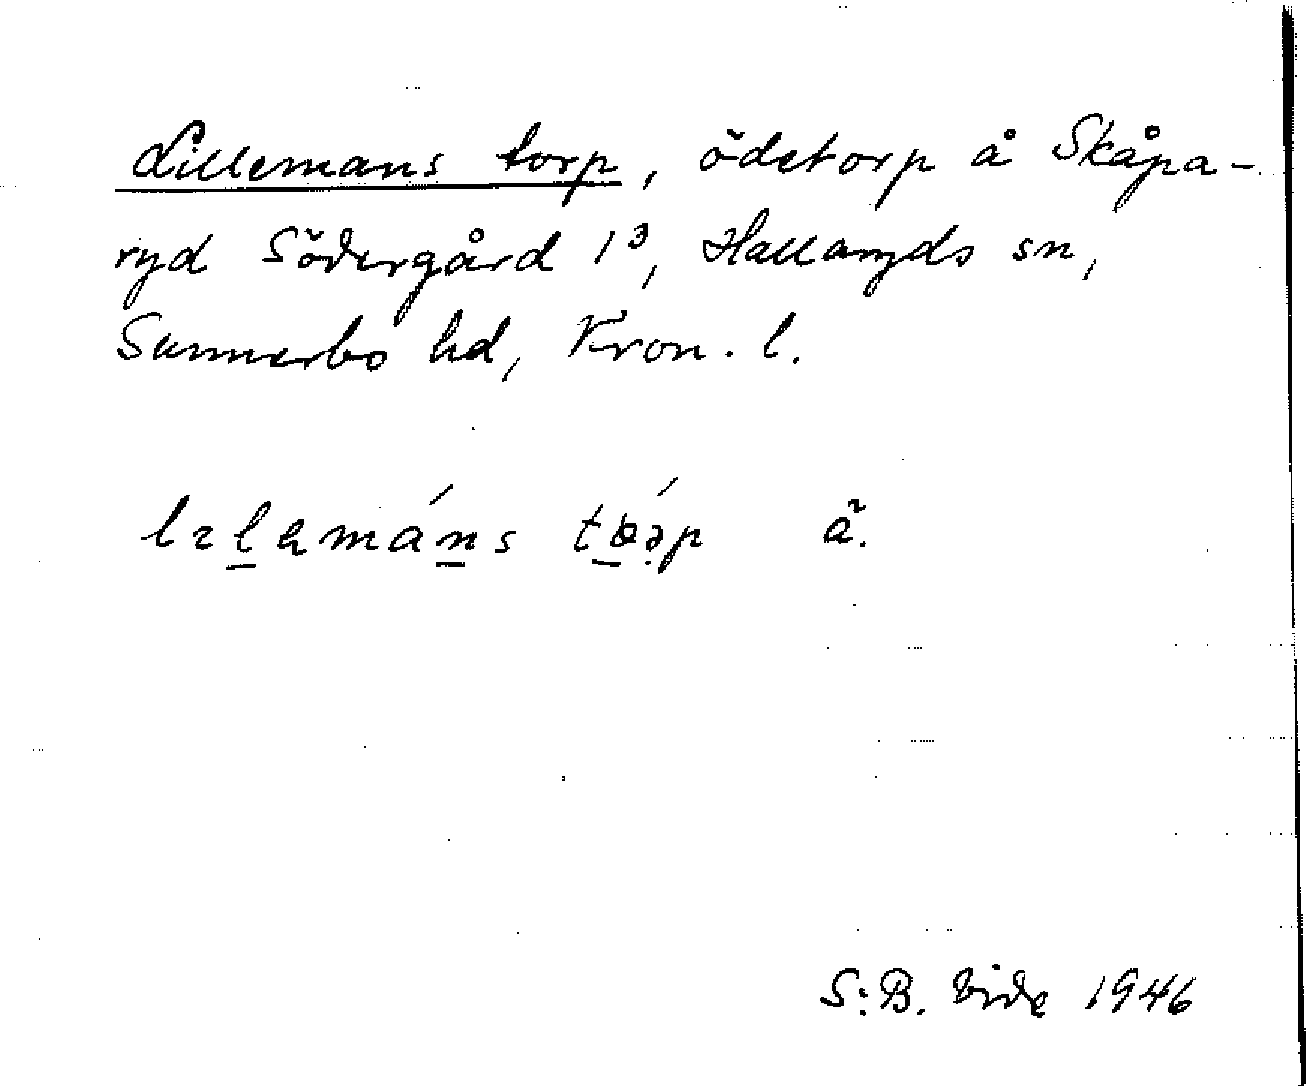 Lillemans torp, ödetorp å Skåpa-
ryd Södergård 1³, Hallaryds sn,
Sunnerbo hd, Kron. l.
å.
S:B. Vide 1946